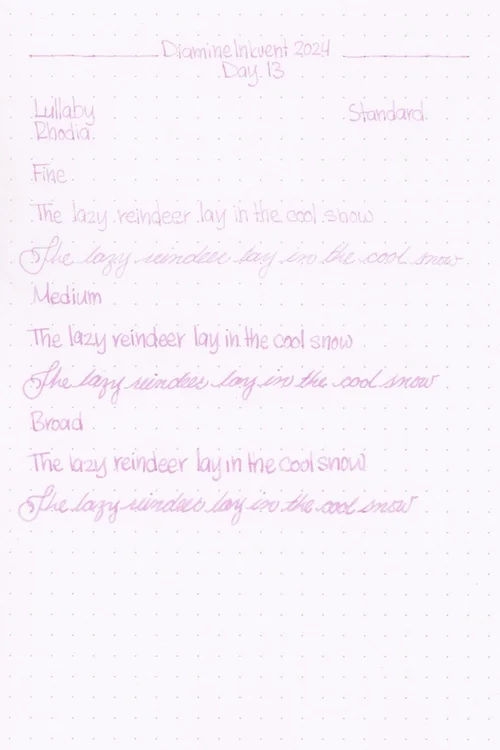 Diamine Inkvent 2024
Day 13
Lullaby Standard
Rhodia
Fine
The lazy reindeer lay in the cool snow
The lazy reindeer lay in the cool snow
Medium
The lazy reindeer lay in the cool snow
The lazy reindeer lay in the cool snow
Broad
The lazy reindeer lay in the cool snow
The lazy reindeer lay in the cool snow